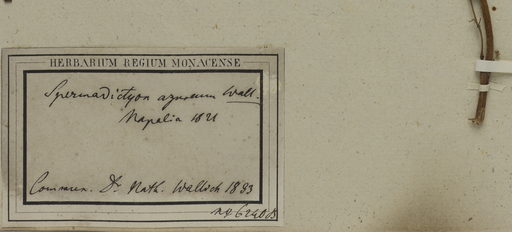 HERBARIUM REGIUM MONACENSE
Spermadictyon azureum Wall.
Napalia 1821
Commun. Dr. Nath. Wallich 1833